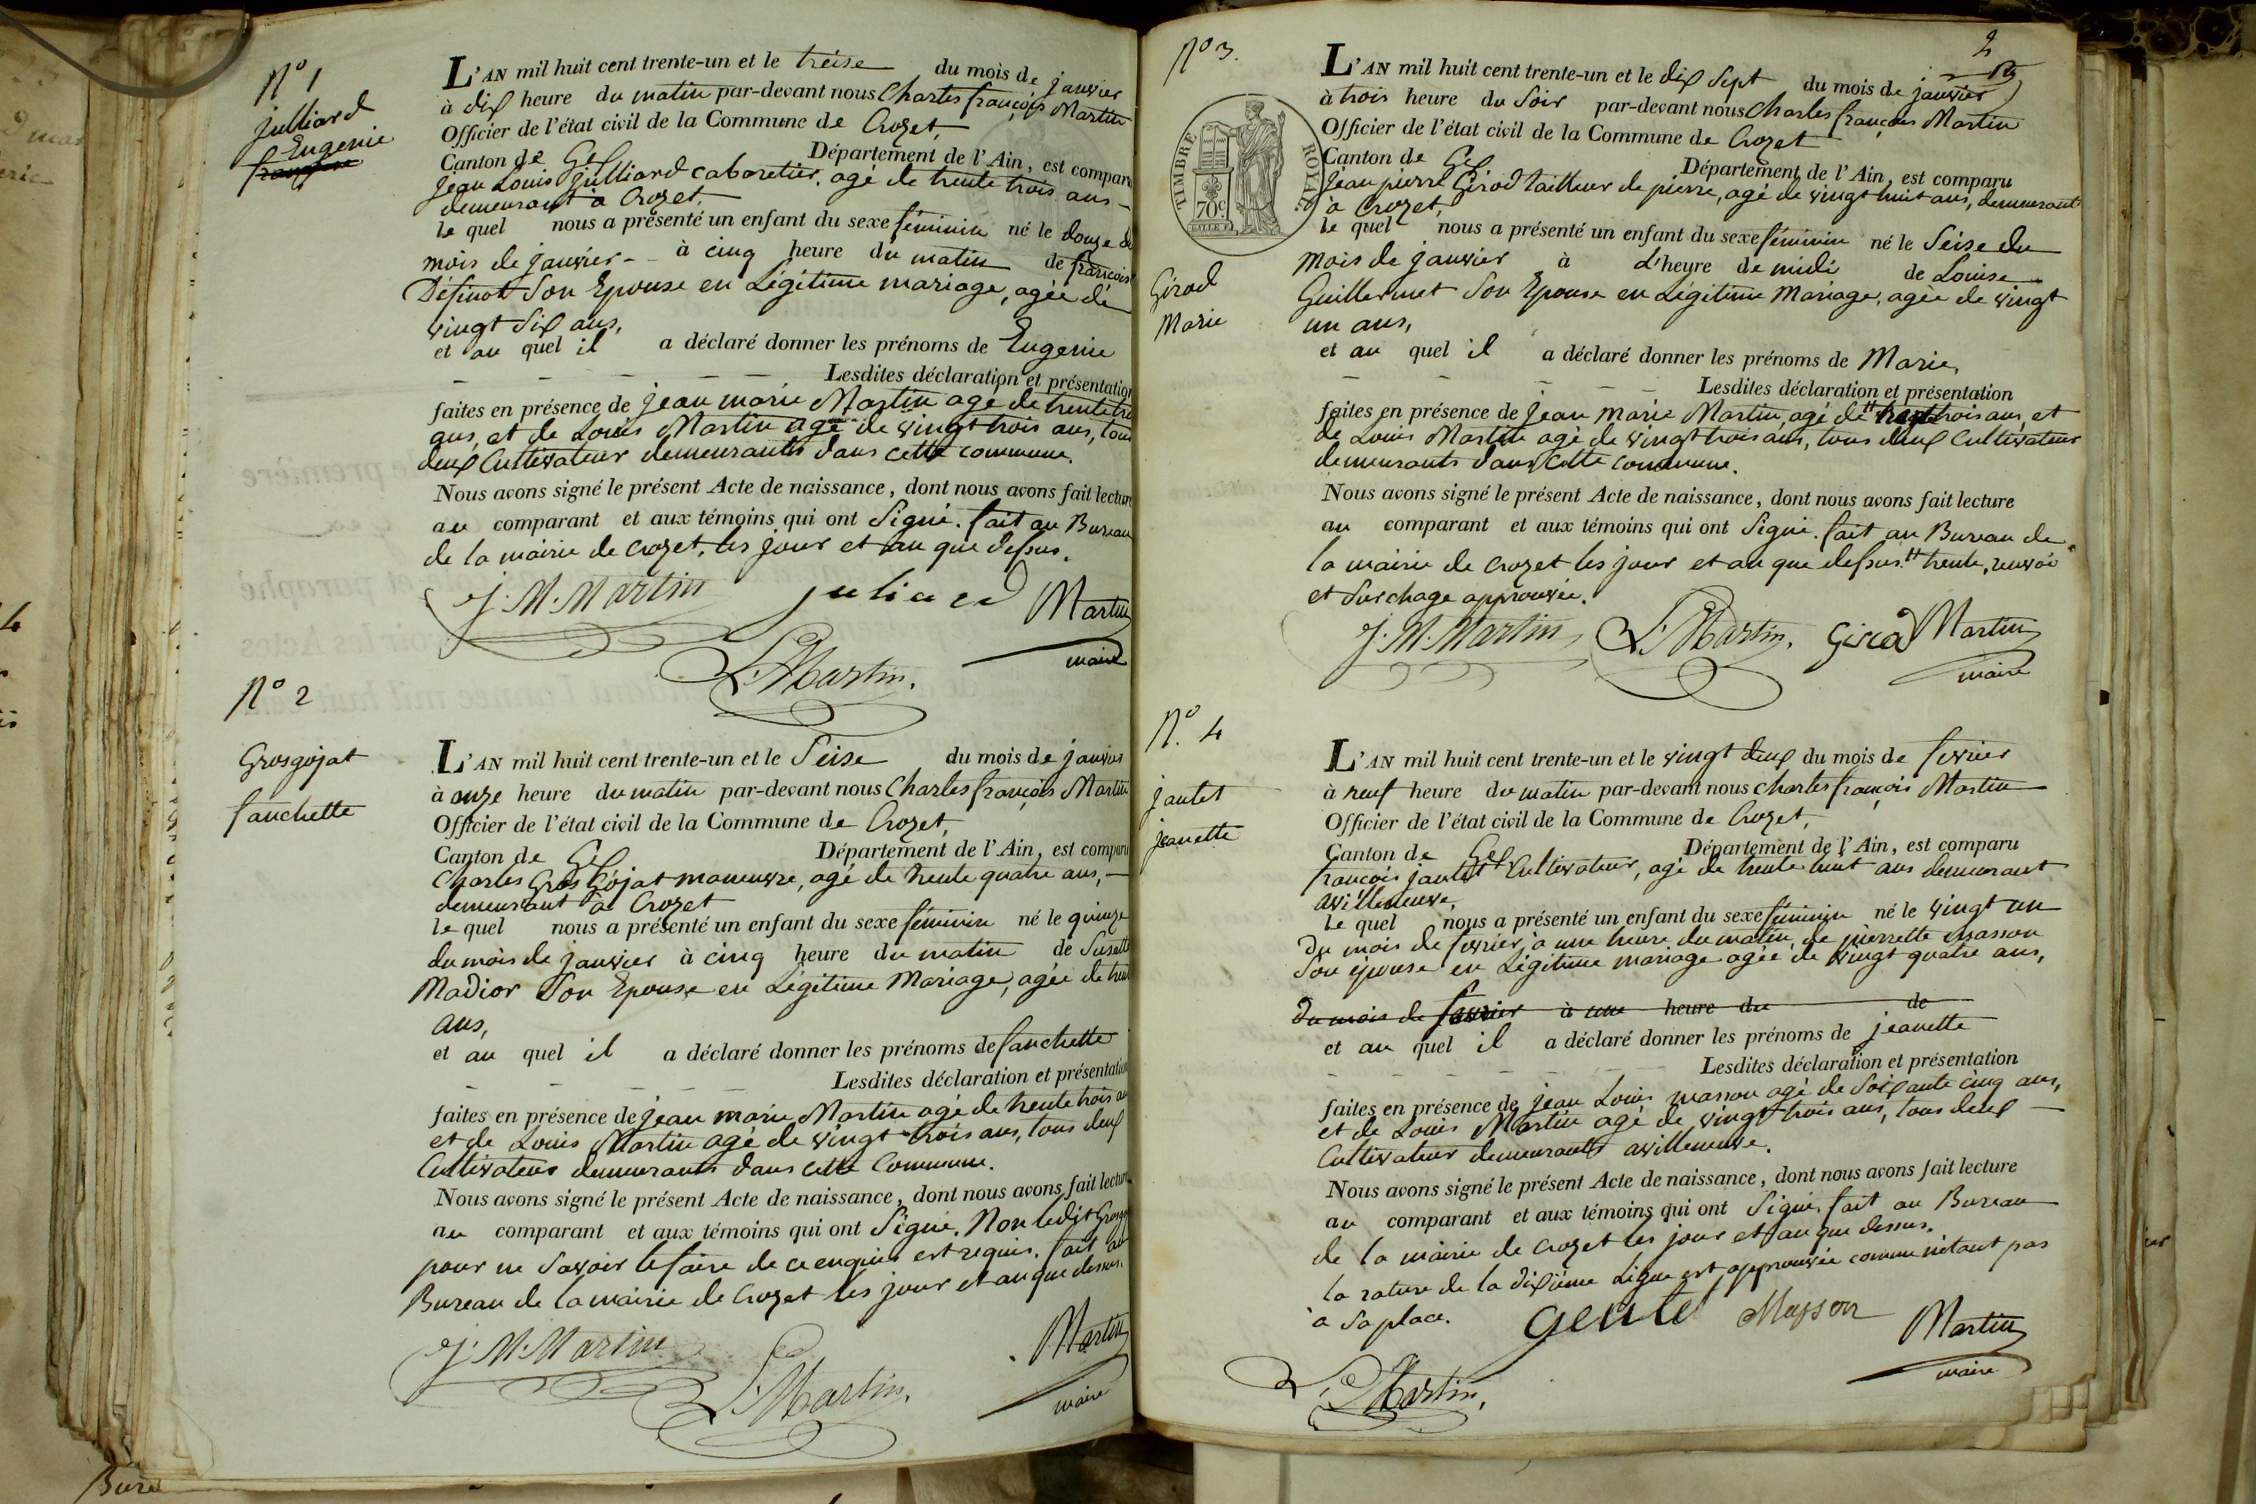 N° 1
julliard
Eugenie
françoise
L'AN mil huit cent trente-un et le treise du mois de janvier
à dix heure du matin par-devant nous Charles françois Martin
Officier de l'état civil de la Commune de Crozet,
Canton de Gex Département de l'Ain, est comparu
jean Louis julliard cabaretier, agé de trente trois ans
demeurant à Crozet,
le quel nous a présenté un enfant du sexe féminin né le douze du
mois de janvier à cinq heure du matin de françoise
Définot Son Epouse en Légitime mariage, agée de
vingt Six ans,
et au quel il a déclaré donner les prénoms de Eugenie
Lesdites déclaration et présentation
faites en présence de jean marie Martin agé de trente trois
ans, et de Louis Martin agé de vingt trois ans, tous
deux Cultivateur demeurants dans cette commune.
Nous avons signé le présent Acte de naissance, dont nous avons fait lecture
au comparant et aux témoins qui ont Signé. fait au Bureau
de la mairie de crozet, les jour et an que dessus.
J. M. Martin juliard Martin
maire
L. Martin.
N° 2
Grosgojat
fanchette
L'AN mil huit cent trente-un et le Seise du mois de janvier
à onze heure du matin par-devant nous Charles françois Martin
Officier de l'état civil de la Commune de Crozet,
Canton de Gex Département de l'Ain, est comparu
Charles Gros Gojat maneuvre, agé de trente quatre ans,
demeurant à Crozet
le quel nous a présenté un enfant du sexe féminin né le quinze
du mois de janvier à cinq heure du matin de Susette
Madior Son Epouse en Légitime Mariage, agée de trente
ans,
et au quel il a déclaré donner les prénoms de fanchette
Lesdites déclaration et présentation
faites en présence de jean marie Martin agé de trente trois ans
et de Louis Martin agé de vingt trois ans, tous deux
Cultivateurs demeurants dans cette Commune.
Nous avons signé le présent Acte de naissance, dont nous avons fait lecture
au comparant et aux témoins qui ont Signé. Non ledit
pour ne Savoir le faire de ce enquis et requis. fait au
Bureau de la mairie de Crozet les jour et an que dessus.
J. M. Martin Martin
L. Martin. maire
2
N° 3.
TIMBRE ROYAL
70c
Girod
Marie
L'AN mil huit cent trente-un et le dix Sept du mois de janvier
à trois heure du Soir par-devant nous Charles françois Martin
Officier de l'état civil de la Commune de Crozet
Canton de Gex Département de l'Ain, est comparu
jean pierre Girod tailleur de pierre, agé de vingt huit ans, demeurant
à Crozet,
le quel nous a présenté un enfant du sexe féminin né le Seise du
mois de janvier à L'heure de midi de Louise
Guillermet Son Epouse en Légitime Mariage, agée de vingt
un ans,
et au quel il a déclaré donner les prénoms de Marie,
Lesdites déclaration et présentation
faites en présence de jean marie Martin, agé de trois ans, et
de Louis Martin agé de vingt trois ans, tous deux Cultivateur
demeurants dans cette commune.
Nous avons signé le présent Acte de naissance, dont nous avons fait lecture
au comparant et aux témoins qui ont Signé. fait au Bureau de
la mairie de crozet les jour et an que dessus. trente, renvoi
et Surchage approuvée.
J. M. Martin L. Martin. Girod Martin
maire
N°. 4
jantet
jeanette
L'AN mil huit cent trente-un et le vingt deux du mois de fevrier
à neuf heure du matin par-devant nous charles françois Martin
Officier de l'état civil de la Commune de Crozet,
Canton de Gex Département de l'Ain, est comparu
françois jantet Cultivateur, agé de trente huit ans demeurant
avilleneuve,
le quel nous a présenté un enfant du sexe féminin né le vingt un
du mois de fevrier, à une heure du matin, de pierrette masson
Son épouse en Légitime mariage agée de vingt quatre ans,
du mois de fevrier à une heure du de
et au quel il a déclaré donner les prénoms de jeanette
Lesdites déclaration et présentation
faites en présence de jean Louis masson agé de Soixante cinq ans,
et de Louis Martin agé de vingt trois ans, tous deux
Cultivateur demeurants avilleneuve.
Nous avons signé le présent Acte de naissance, dont nous avons fait lecture
au comparant et aux témoins qui ont Signé. fait au Bureau
de la mairie de crozet les jour et an que dessus.
la rature de la dixième Ligne est approuvée comme nétant pas
à Sa place. Masson Martin
maire
L. Martin.